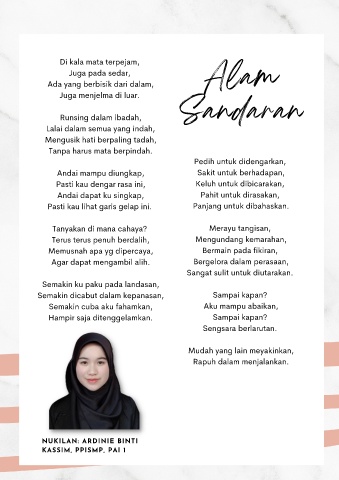 Alam
Sandaran
Di kala mata terpejam,
Juga pada sedar,
Ada yang berbisik dari dalam,
Juga menjelma di luar.
Runsing dalam ibadah,
Lalai dalam semua yang indah,
Mengusik hati berpaling tadah,
Tanpa harus mata berpindah.
Andai mampu diungkap,
Pasti kau dengar rasa ini,
Andai dapat ku singkap,
Pasti kau lihat garis gelap ini.
Tanyakan di mana cahaya?
Terus terus penuh berdalih,
Memusnah apa yg dipercaya,
Agar dapat mengambil alih.
Semakin ku paku pada landasan,
Semakin dicabut dalam kepanasan,
Semakin cuba aku fahamkan,
Hampir saja ditenggelamkan.
Pedih untuk didengarkan,
Sakit untuk berhadapan,
Keluh untuk dibicarakan,
Pahit untuk dirasakan,
Panjang untuk dibahaskan.
Merayu tangisan,
Mengundang kemarahan,
Bermain pada fikiran,
Bergelora dalam perasaan,
Sangat sulit untuk diutarakan.
Sampai kapan?
Aku mampu abaikan,
Sampai kapan?
Sengsara berlarutan.
Mudah yang lain meyakinkan,
Rapuh dalam menjalankan.
NUKILAN: ARDINIE BINTI
KASSIM, PPISMP, PAI 1